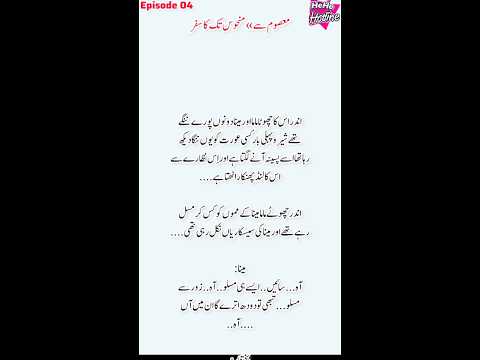 Episode 04
HeHe
Hotline
معصوم سے،، منحوس تک کا سفر
اندر اس کا چھوٹا ماما اور مینا دونوں پورے ننگے
تھے شیرو پہلی بار کسی عورت کو یوں ننگا دیکھ
رہا تھا اسے پسینہ آنے لگتا ہے اور اس نظارے سے
اس کا لنڈ پھنکار اٹھتا ہے....
اندر چھوٹے ماما مینا کے مموں کو کس کر مسل
رہے تھے اور مینا کی سیسکاریاں نکل رہی تھی....
مینا:
آہ...سائیں..ایسے ہی مسلو..آہ..زور سے
مسلو...تبھی تو دودھ اترے گا ان میں آں
....آہ..